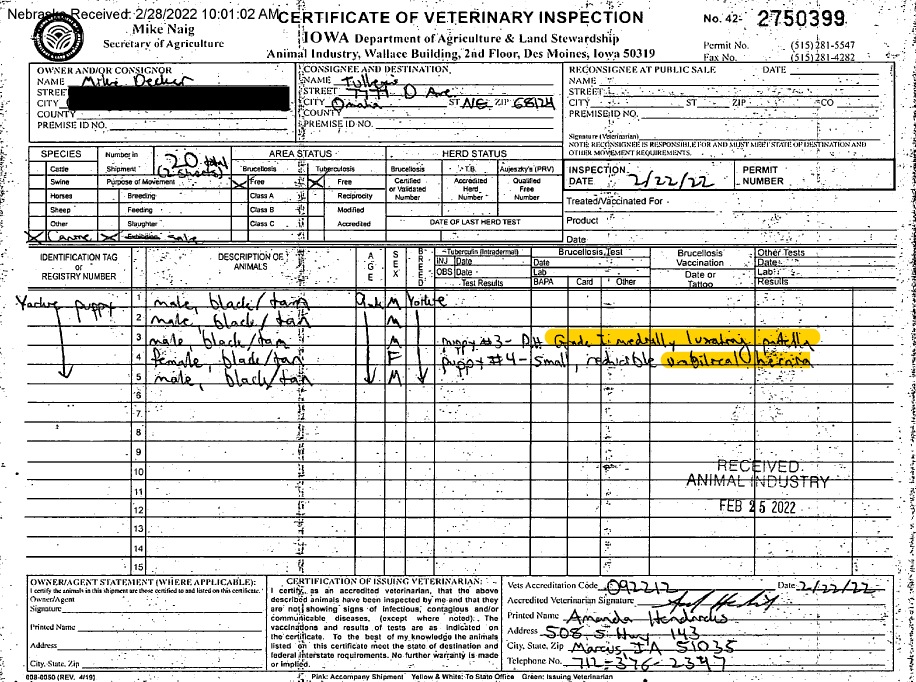 Nebraska Received: 2/28/2022 10:01:02 AM
CERTIFICATE OF VETERINARY INSPECTION
No. 42- 2750399
Mike Naig
Secretary of Agriculture
IOWA Department of Agriculture & Land Stewardship
Animal Industry, Wallace Building, 2nd Floor, Des Moines, Iowa 50319
Permit No. (515) 281-5547
Fax No. (515) 281-4282
OWNER AND/OR CONSIGNOR
NAME Mike Decker
STREET
CITY
COUNTY
PREMISE ID NO.
CONSIGNEE AND DESTINATION
NAME
STREET D Ave
CITY Omaha ST NE ZIP 68124
COUNTY
PREMISE ID NO.
RECONSIGNEE AT PUBLIC SALE DATE
NAME
STREET
CITY ST ZIP CO
PREMISE ID NO.
Signature (Veterinarian)
NOTE: RECONSIGNEE IS RESPONSIBLE FOR AND MUST MEET STATE OF DESTINATION AND OTHER MOVEMENT REQUIREMENTS.
SPECIES
Cattle
Swine
Horses
Sheep
Other
X Canine
Number in Shipment 20 total (2 sheets)
Purpose of Movement
Breeding
Feeding
Slaughter
X Exhibition Sale
AREA STATUS
Brucellosis
X Free
Class A
Class B
Class C
Tuberculosis
X Free
Reciprocity
Modified
Accredited
HERD STATUS
Brucellosis
Certified or Validated Number
T.B.
Accredited Herd Number
Aujeszky's (PRV)
Qualified Free Number
DATE OF LAST HERD TEST
INSPECTION DATE 2/22/22
PERMIT NUMBER
Treated/Vaccinated For
Product
Date
IDENTIFICATION TAG or REGISTRY NUMBER
DESCRIPTION OF ANIMALS
AGE
SEX
BREED
Tuberculin (Intradermal)
INJ Date
OBS Date
Test Results
Brucellosis Test
Date
Lab
BAPA Card Other
Brucellosis Vaccination
Date or Tattoo
Other Tests
Date
Lab
Results
Yorkie puppy 1 male, black/tan M Yorkie
2 male, black/tan M
3 male, black/tan M puppy #3 - Grade I medially luxating patella
4 female, black/tan F puppy #4 - small, reducible umbilical hernia
5 male, black/tan M
6
7
8
9
10
11
12
13
14
15
RECEIVED
ANIMAL INDUSTRY
FEB 25 2022
OWNER/AGENT STATEMENT (WHERE APPLICABLE):
I certify the animals in this shipment are those certified to and listed on this certificate.
Owner/Agent
Signature
Printed Name
Address
City, State, Zip
CERTIFICATION OF ISSUING VETERINARIAN:
I certify, as an accredited veterinarian, that the above
described animals have been inspected by me and that they
are not showing signs of infectious, contagious and/or
communicable diseases, (except where noted). The
vaccinations and results of tests are as indicated on
the certificate. To the best of my knowledge the animals
listed on this certificate meet the state of destination and
federal interstate requirements. No further warranty is made
or implied.
Vets Accreditation Code 092212 Date 2/22/22
Accredited Veterinarian Signature
Printed Name Amanda Hendricks
Address 508 S Hwy 143
City, State, Zip Marcus, IA 51035
Telephone No. 712-376-2347
008-0050 (REV. 4/19)
Pink: Accompany Shipment Yellow & White: To State Office Green: Issuing Veterinarian